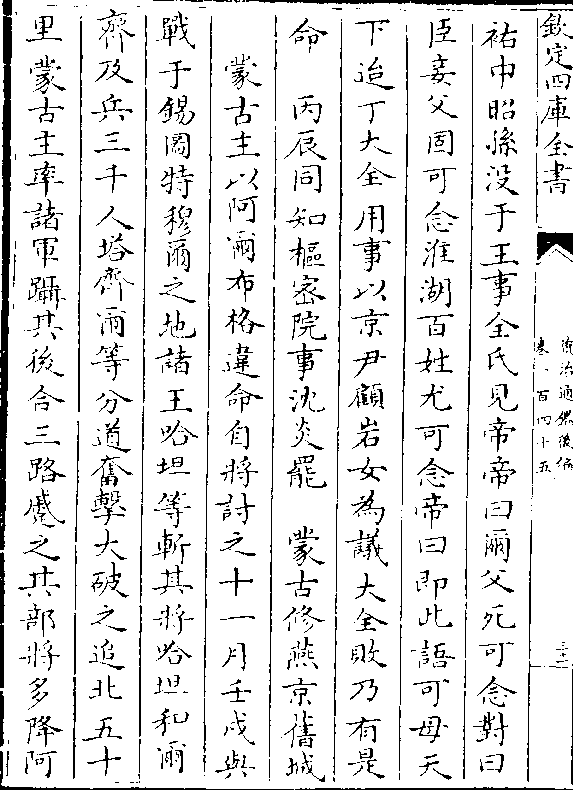 欽定四庫全書
資治通鑑後編
卷一百四十五
三十二
祐中昭孫没于王事全氏見帝帝曰爾父死可念對曰
臣妾父固可念淮湖百姓尤可念帝曰即此語可母天
下迨丁大全用事以京尹顧岩女為議大全敗乃有是
命　丙辰同知樞密院事沈炎罷　蒙古修燕京舊城
蒙古主以阿爾布格違命自將討之十一月壬戌與
戰于錫圖特穆爾之地諸王哈坦等斬其將哈坦和爾
齊及兵三千人塔齊爾等分道奮擊大破之追北五十
里蒙古主率諸軍躡其後合三路蹙之其部將多降阿